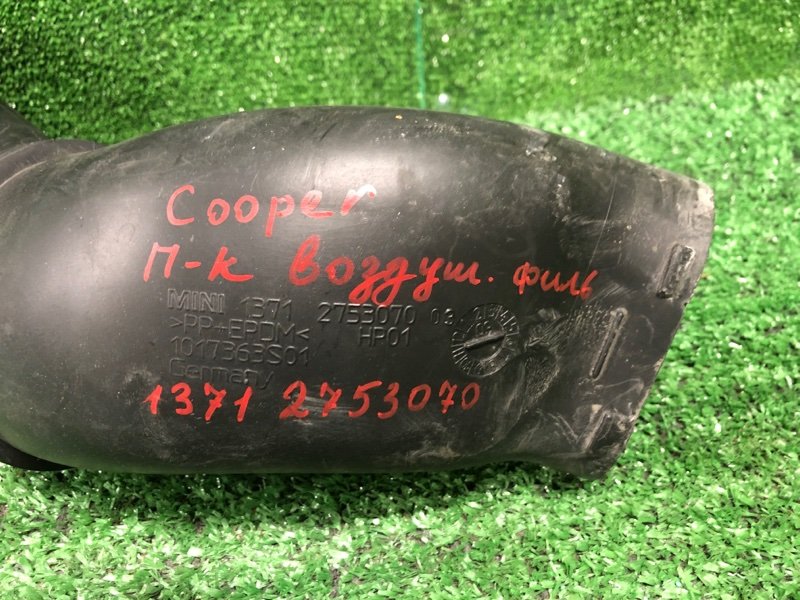 Cooper
П-к воздуш. филь
MINI 1371 2753070 03
>PP+EPDM< HP01
1017363S01
Germany
1371 2753070